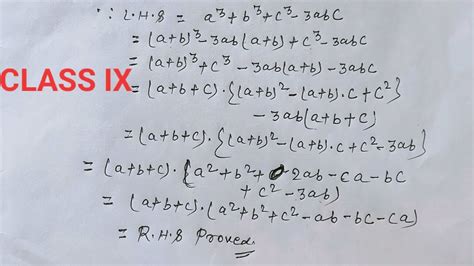 ∴ L.H.S = a³+b³+c³-3abc
= (a+b)³-3ab(a+b)+c³-3abc
= (a+b)³+c³-3ab(a+b)-3abc
CLASS IX
= (a+b+c).{(a+b)²-(a+b).c+c²}
-3ab(a+b+c)
= (a+b+c).{(a+b)²-(a+b).c+c²-3ab}
= (a+b+c).{a²+b²+2ab-ca-bc
+c²-3ab)
= (a+b+c).(a²+b²+c²-ab-bc-ca)
= R.H.S Proved.